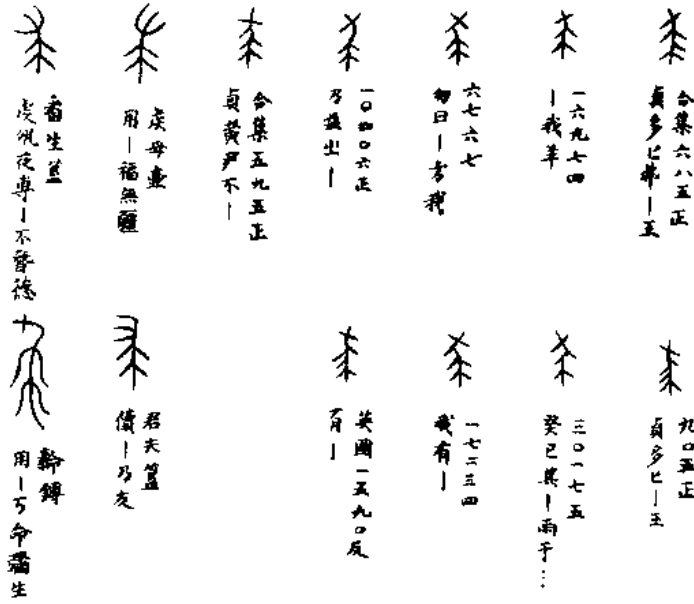 合集六八五正
貞多匕丨王
一六九七四
丨我羊
六七六七
勿曰丨方我
一〇四〇六正
乃茲出丨
合集五九五正
貞黃尹不丨
母壺
用丨福無疆
番生簋
虔夙夜尃丨不朁德
九〇五正
貞多匕丨王
三〇一七五
癸巳其丨雨于…
一七二三四
我有丨
英國一五九〇反
丨
君夫簋
儥丨乃友
鎛
用丨丂命彌生